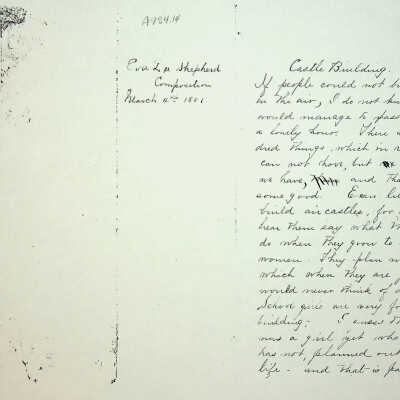 A984.14
Eva L. M. Shepherd
Composition
March 11th 1881
Castle Building.
If people could not bu
in the air, I do not kn
would manage to pass
a lonely hour. There
dred things, which in r
can not have, but we
we have, and tha
some good. Even
build aircastles, for
hear them say what th
do when they grow to
women. They plan
which when they are
would never think of
School girls are very fo
building; I guess th
was a girl yet who
has not, planned out
life - and that is pa